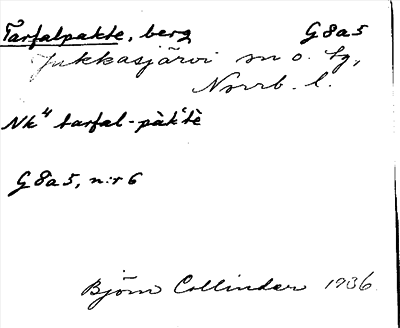 Tarfalpakte, berg G8a5
Jukkasjärvi sn o. tg,
Norrb. l.
Nk" tarfal-pàk‘tè
G8a5, n:r 6
Björn Collinder 1936